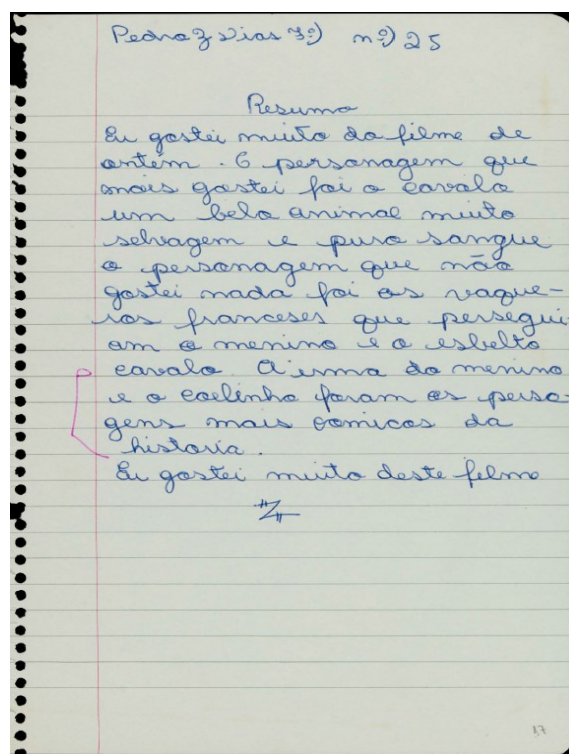 Pedro Z Dias 3º) nº) 25
Resumo
Eu gostei muito do filme de
ontém. O personagem que
mais gostei foi o cavalo
um belo animal muito
selvagem e puro sangue
o personagem que não
gostei nada foi os vaque-
ros franceses que persegui
am o menino e o esbelto
cavalo. A irma do menino
e o coelinho foram os perso-
gens mais comicos da
historia.
Eu gostei muito deste filme
37